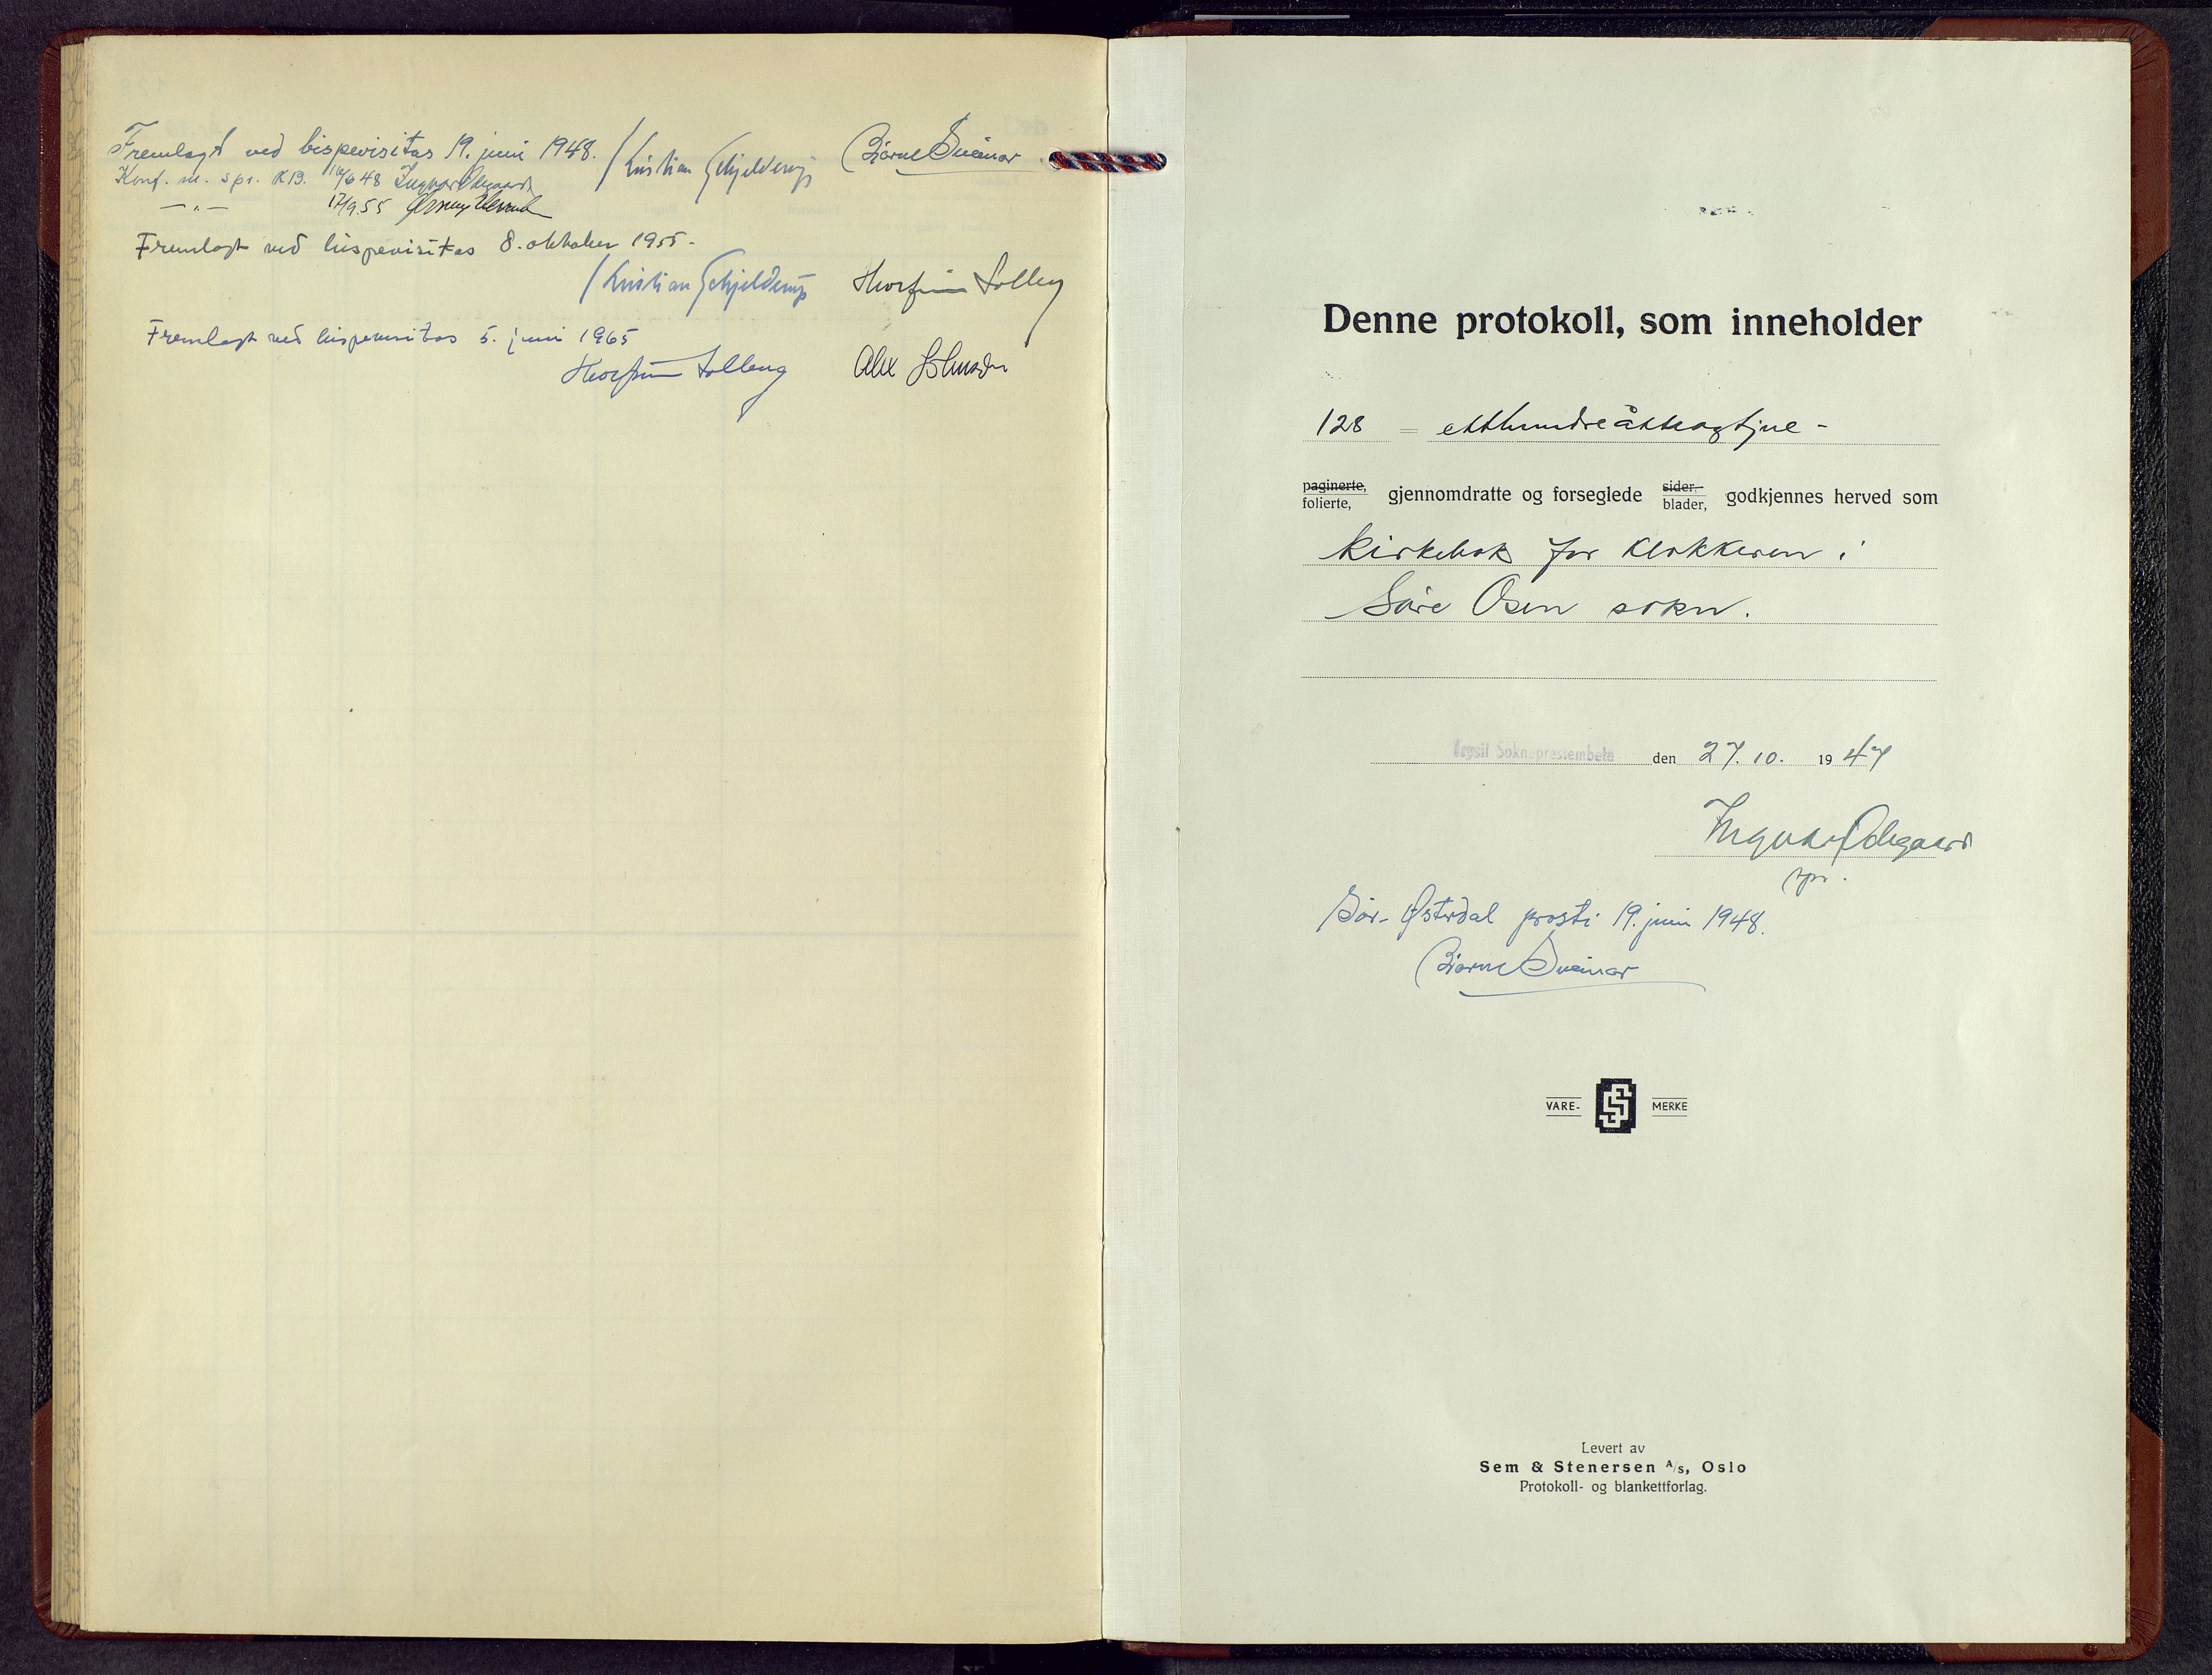 Fremlagt ved bispevisitas 19. juni 1948. Kristian Schjelderup Bjarne Sveinar
Konf. m. spr. KB. 19/6 48 Ingvar Ødegaard
— " — 17/9.55
Fremlagt ved bispevisitas 8. oktober 1955.
Kristian Schjelderup Thorfinn Solberg
Fremlagt ved bispevisitas 5. juni 1965
Thorfinn Solberg Alex Johnson
Denne protokoll, som inneholder
128 = etthundreåttogtjue -
paginerte, folierte, gjennomdratte og forseglede sider, blader, godkjennes herved som
kirkebok for klokkeren i
Søre Osen sokn.
Trysil Sokneprestembete den 27. 10. 1947
Ingvar Ødegaard
spr.
Sør-Østerdal prosti 19. juni 1948.
Bjarne Sveinar
VARE- SS MERKE
Levert av
Sem & Stenersen A/s, Oslo
Protokoll- og blankettforlag.